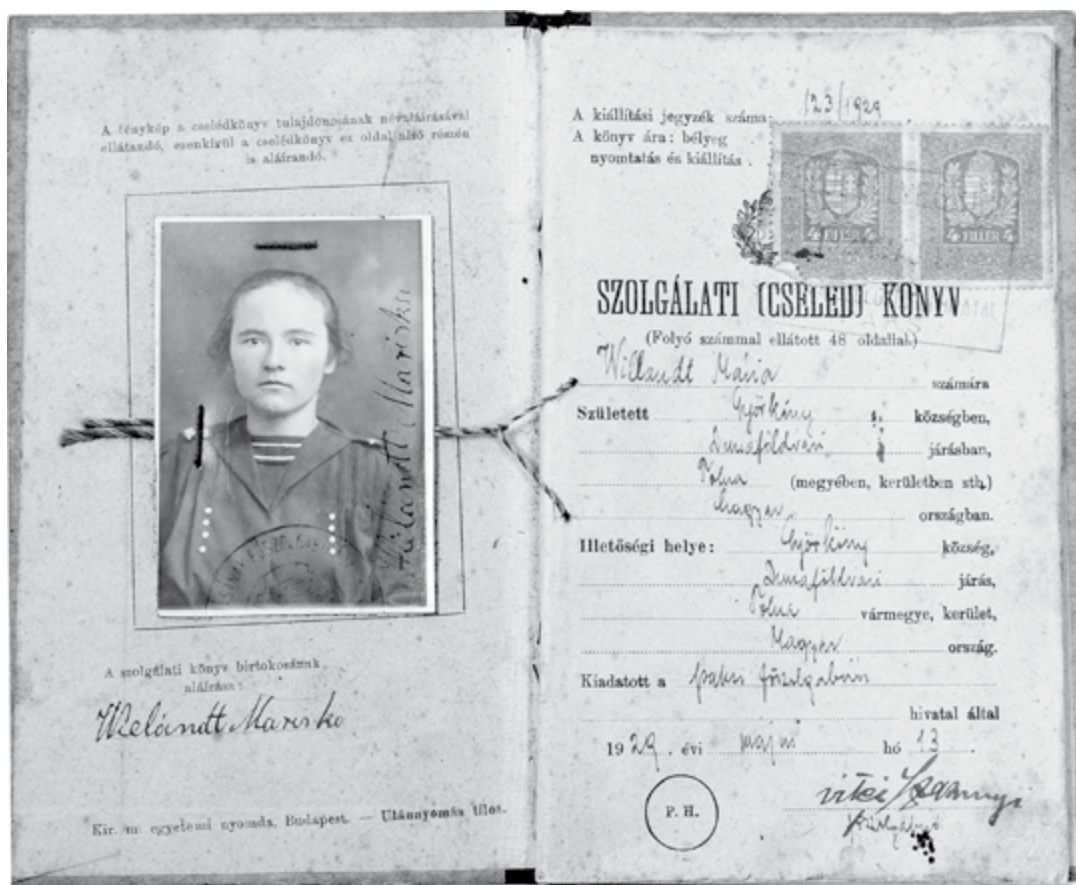 A fénykép a cselédkönyv tulajdonosának névaláírásával
ellátandó, esenkívül a cselédkönyv ez oldal alsó részén
is aláirandó.
Wielandt Mariska
A szolgálati könyv birtokosának
aláírása:
Wielandt Mariska
Kir. m. egyetemi nyomda, Budapest. — Utánnyomás tilos.
A kiállítási jegyzék száma: 123/1929
A könyv ára: bélyeg
nyomtatás és kiállítás .
4 FILLÉR 4
4 FILLÉR 4
SZOLGÁLATI (CSELÉD) KÖNYV
(Folyó számmal ellátott 48 oldallal.)
Willandt Mária számára
Született Györköny községben,
Dunaföldvári járásban,
Tolna (megyében, kerületben stb.)
Magyar országban.
Illetőségi helye: Györköny község,
Dunaföldvári járás,
Tolna vármegye, kerület,
Magyar ország.
Kiadatott a paksi főszolgabírói
hivatal által
1929. évi május hó 13.
P. H.
vitéz